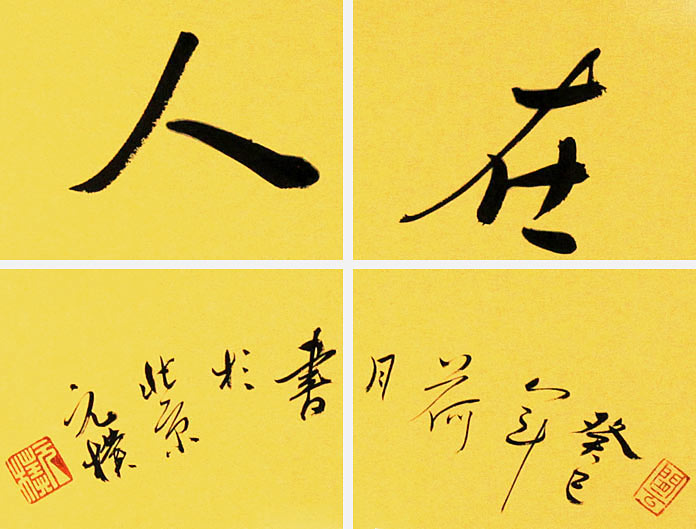 在人
癸巳年荷月書於北京元樸